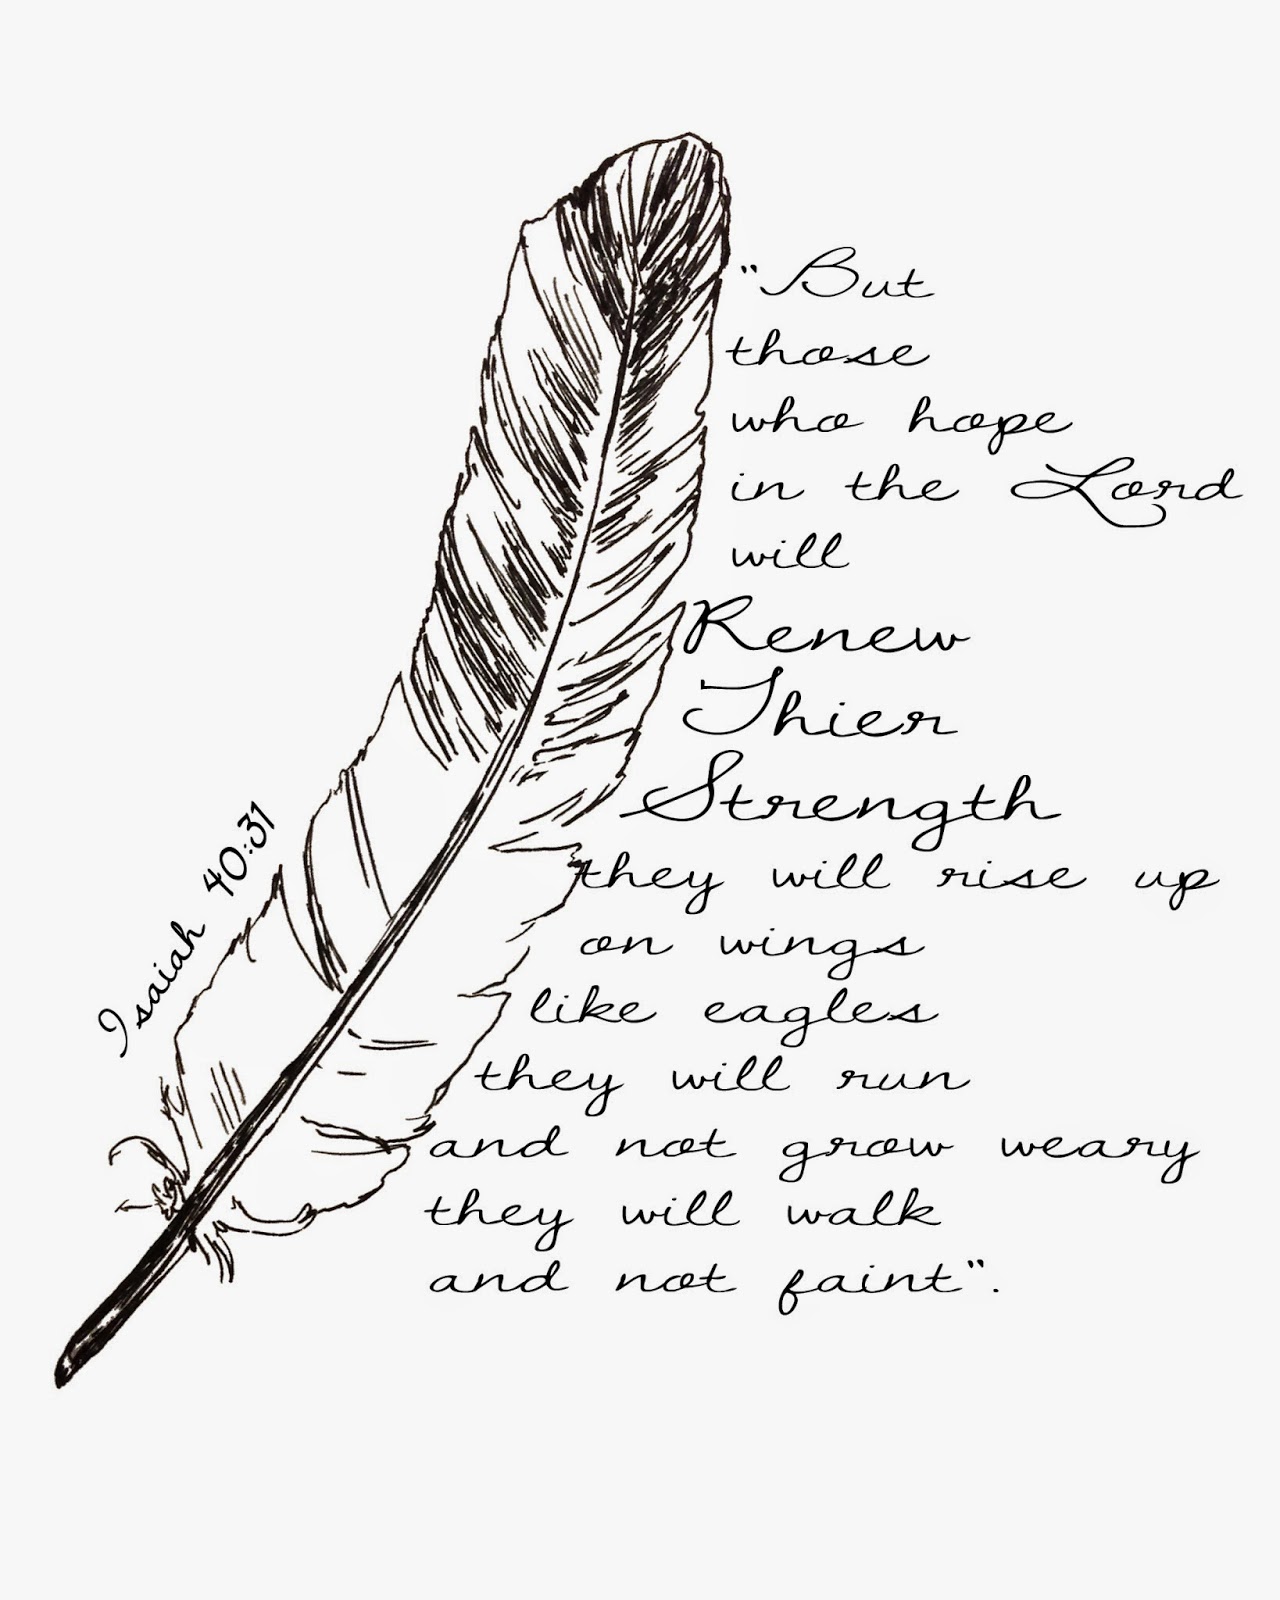 "But
those
who hope
in the Lord
will
Renew
Thier
Strength
they will rise up
on wings
like eagles
they will run
and not grow weary
they will walk
and not faint".
Isaiah 40:31